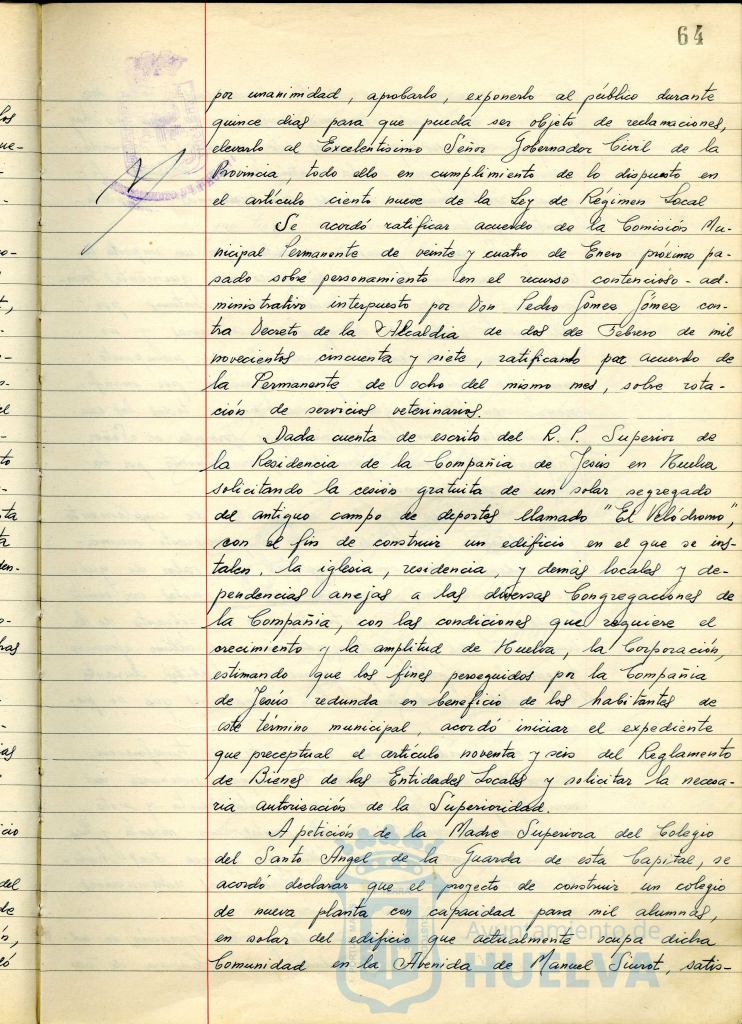 64
por unanimidad, aprobarlo, exponerlo al público durante
quince días para que pueda ser objeto de reclamaciones,
elevarlo al Excelentísimo Señor Gobernador Civil de la
Provincia, todo ello en cumplimiento de lo dispuesto en
el artículo ciento nueve de la Ley de Régimen Local
Se acordó ratificar acuerdo de la Comisión Mu-
nicipal Permanente de veinte y cuatro de Enero próximo pa-
sado sobre personamiento en el recurso contencioso-ad-
ministrativo interpuesto por Don Pedro Gómez Gómez con-
tra Decreto de la Alcaldía de dos de Febrero de mil
novecientos cincuenta y siete, ratificando por acuerdo de
la Permanente de ocho del mismo mes, sobre rota-
ción de servicios veterinarios.
Dada cuenta de escrito del R. P. Superior de
la Residencia de la Compañía de Jesús en Huelva
solicitando la cesión gratuita de un solar segregado
del antiguo campo de deportes llamado "El Velódromo",
con el fin de construir un edificio en el que se ins-
talen, la iglesia, residencia, y demás locales y de-
pendencias anejas a las diversas Congregaciones de
la Compañía, con las condiciones que requiere el
crecimiento y la amplitud de Huelva, la Corporación,
estimando que los fines perseguidos por la Compañía
de Jesús redunda en beneficio de los habitantes de
este término municipal, acordó iniciar el expediente
que preceptual el artículo noventa y seis del Reglamento
de Bienes de las Entidades Locales y solicitar la necesa-
ria autorización de la Superioridad.
A petición de la Madre Superiora del Colegio
del Santo Angel de la Guarda de esta Capital, se
acordó declarar que el proyecto de construir un colegio
de nueva planta con capacidad para mil alumnas,
en solar del edificio que actualmente ocupa dicha
Comunidad en la Avenida de Manuel Siurot, satis-
Ayuntamiento de
HUELVA